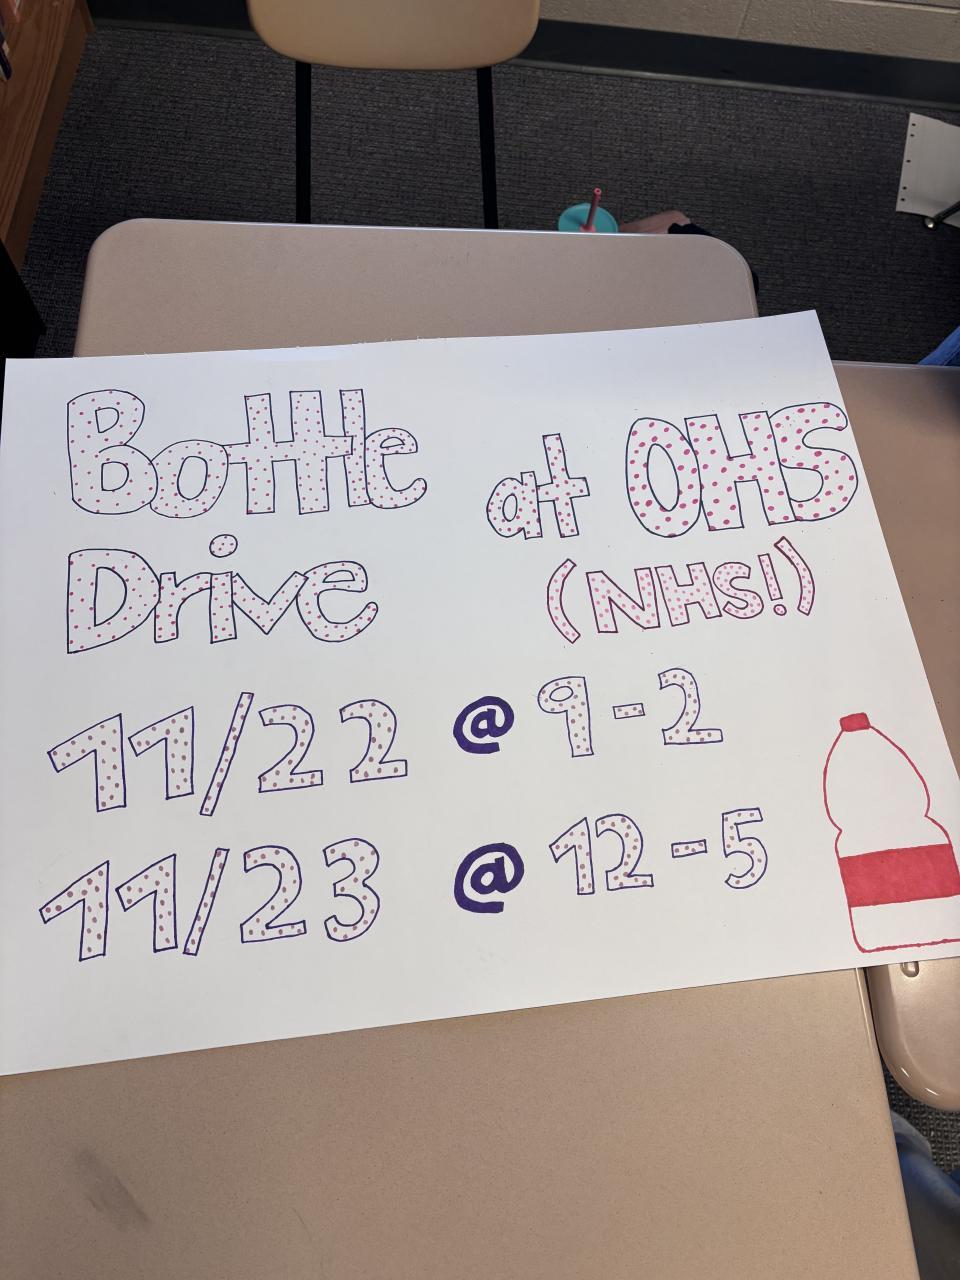 Bottle
Drive
at OHS
(NHS!)
11/22 @ 9-2
11/23 @ 12-5